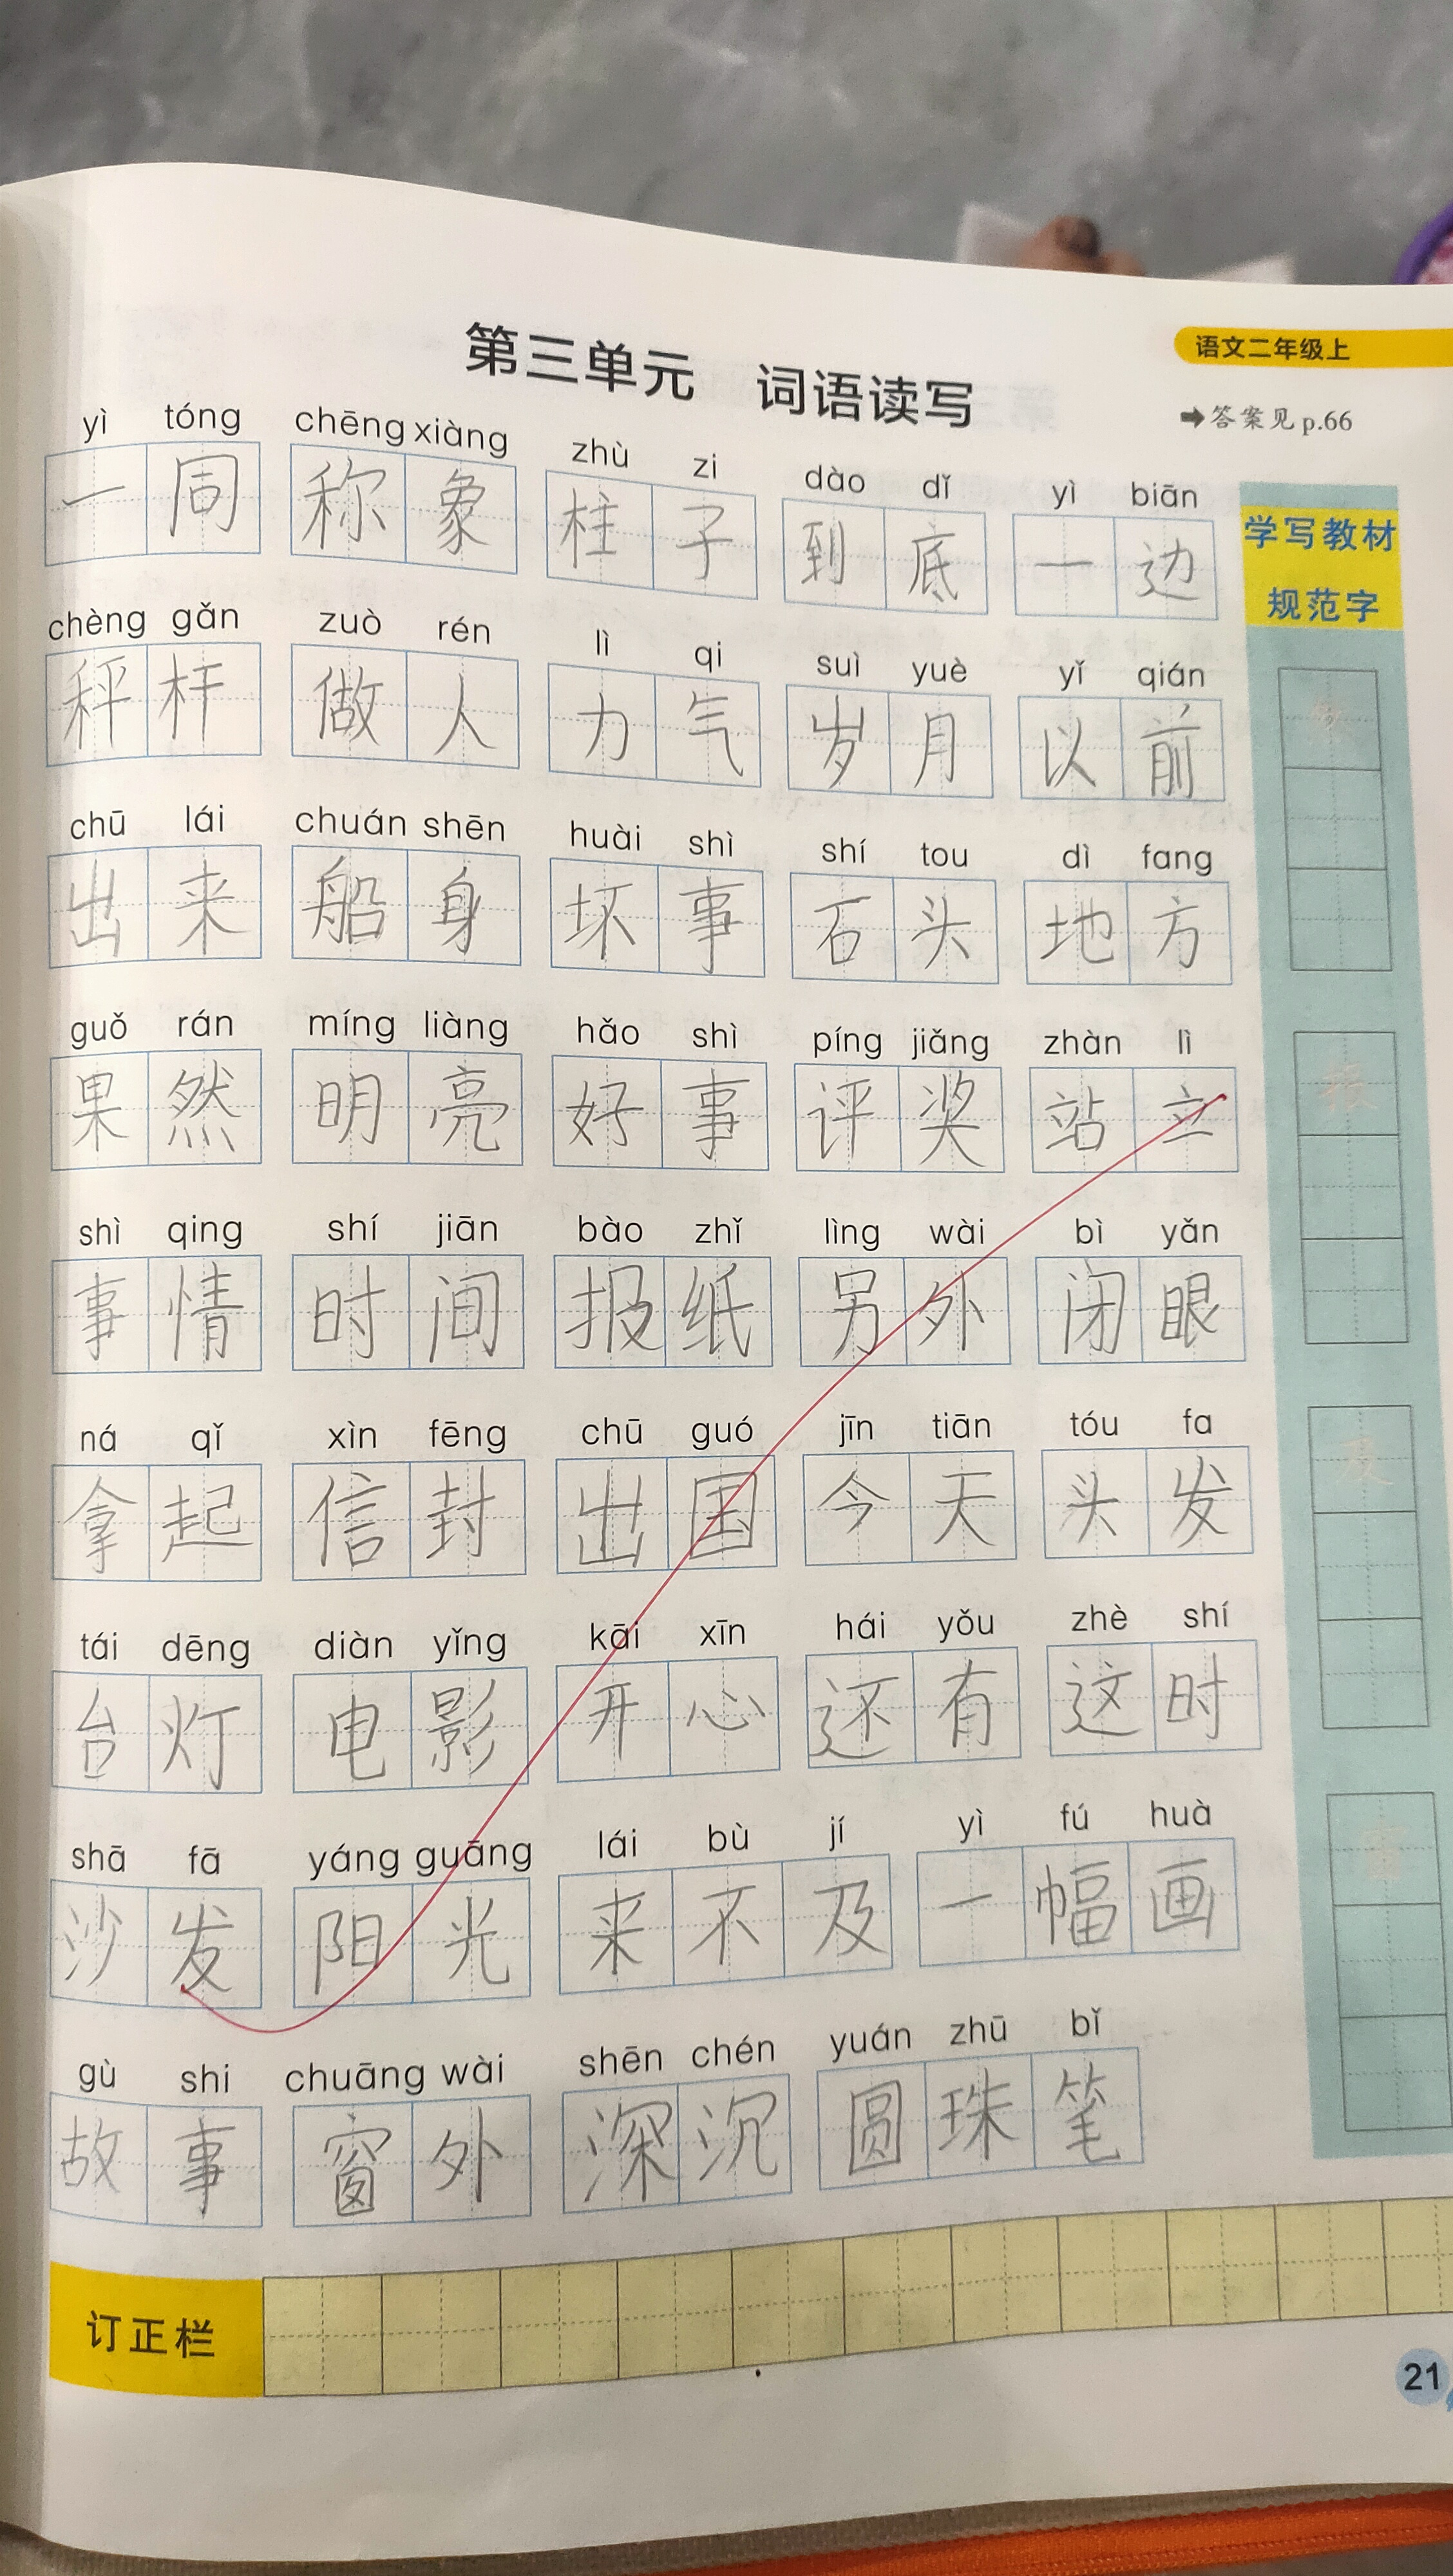 第三单元 词语读写
语文二年级上
➡答案见 p.66
yì tóng chēng xiàng zhù zi dào dǐ yì biān
一同 称象 柱子 到底 一边
chèng gǎn zuò rén lì qi suì yuè yǐ qián
秤杆 做人 力气 岁月 以前
chū lái chuán shēn huài shì shí tou dì fang
出来 船身 坏事 石头 地方
guǒ rán míng liàng hǎo shì píng jiǎng zhàn lì
果然 明亮 好事 评奖 站立
shì qing shí jiān bào zhǐ lìng wài bì yǎn
事情 时间 报纸 另外 闭眼
ná qǐ xìn fēng chū guó jīn tiān tóu fa
拿起 信封 出国 今天 头发
tái dēng diàn yǐng kāi xīn hái yǒu zhè shí
台灯 电影 开心 还有 这时
shā fā yáng guāng lái bù jí yì fú huà
沙发 阳光 来不及 一幅画
gù shi chuāng wài shēn chén yuán zhū bǐ
故事 窗外 深沉 圆珠笔
学写教材
规范字
订正栏
21